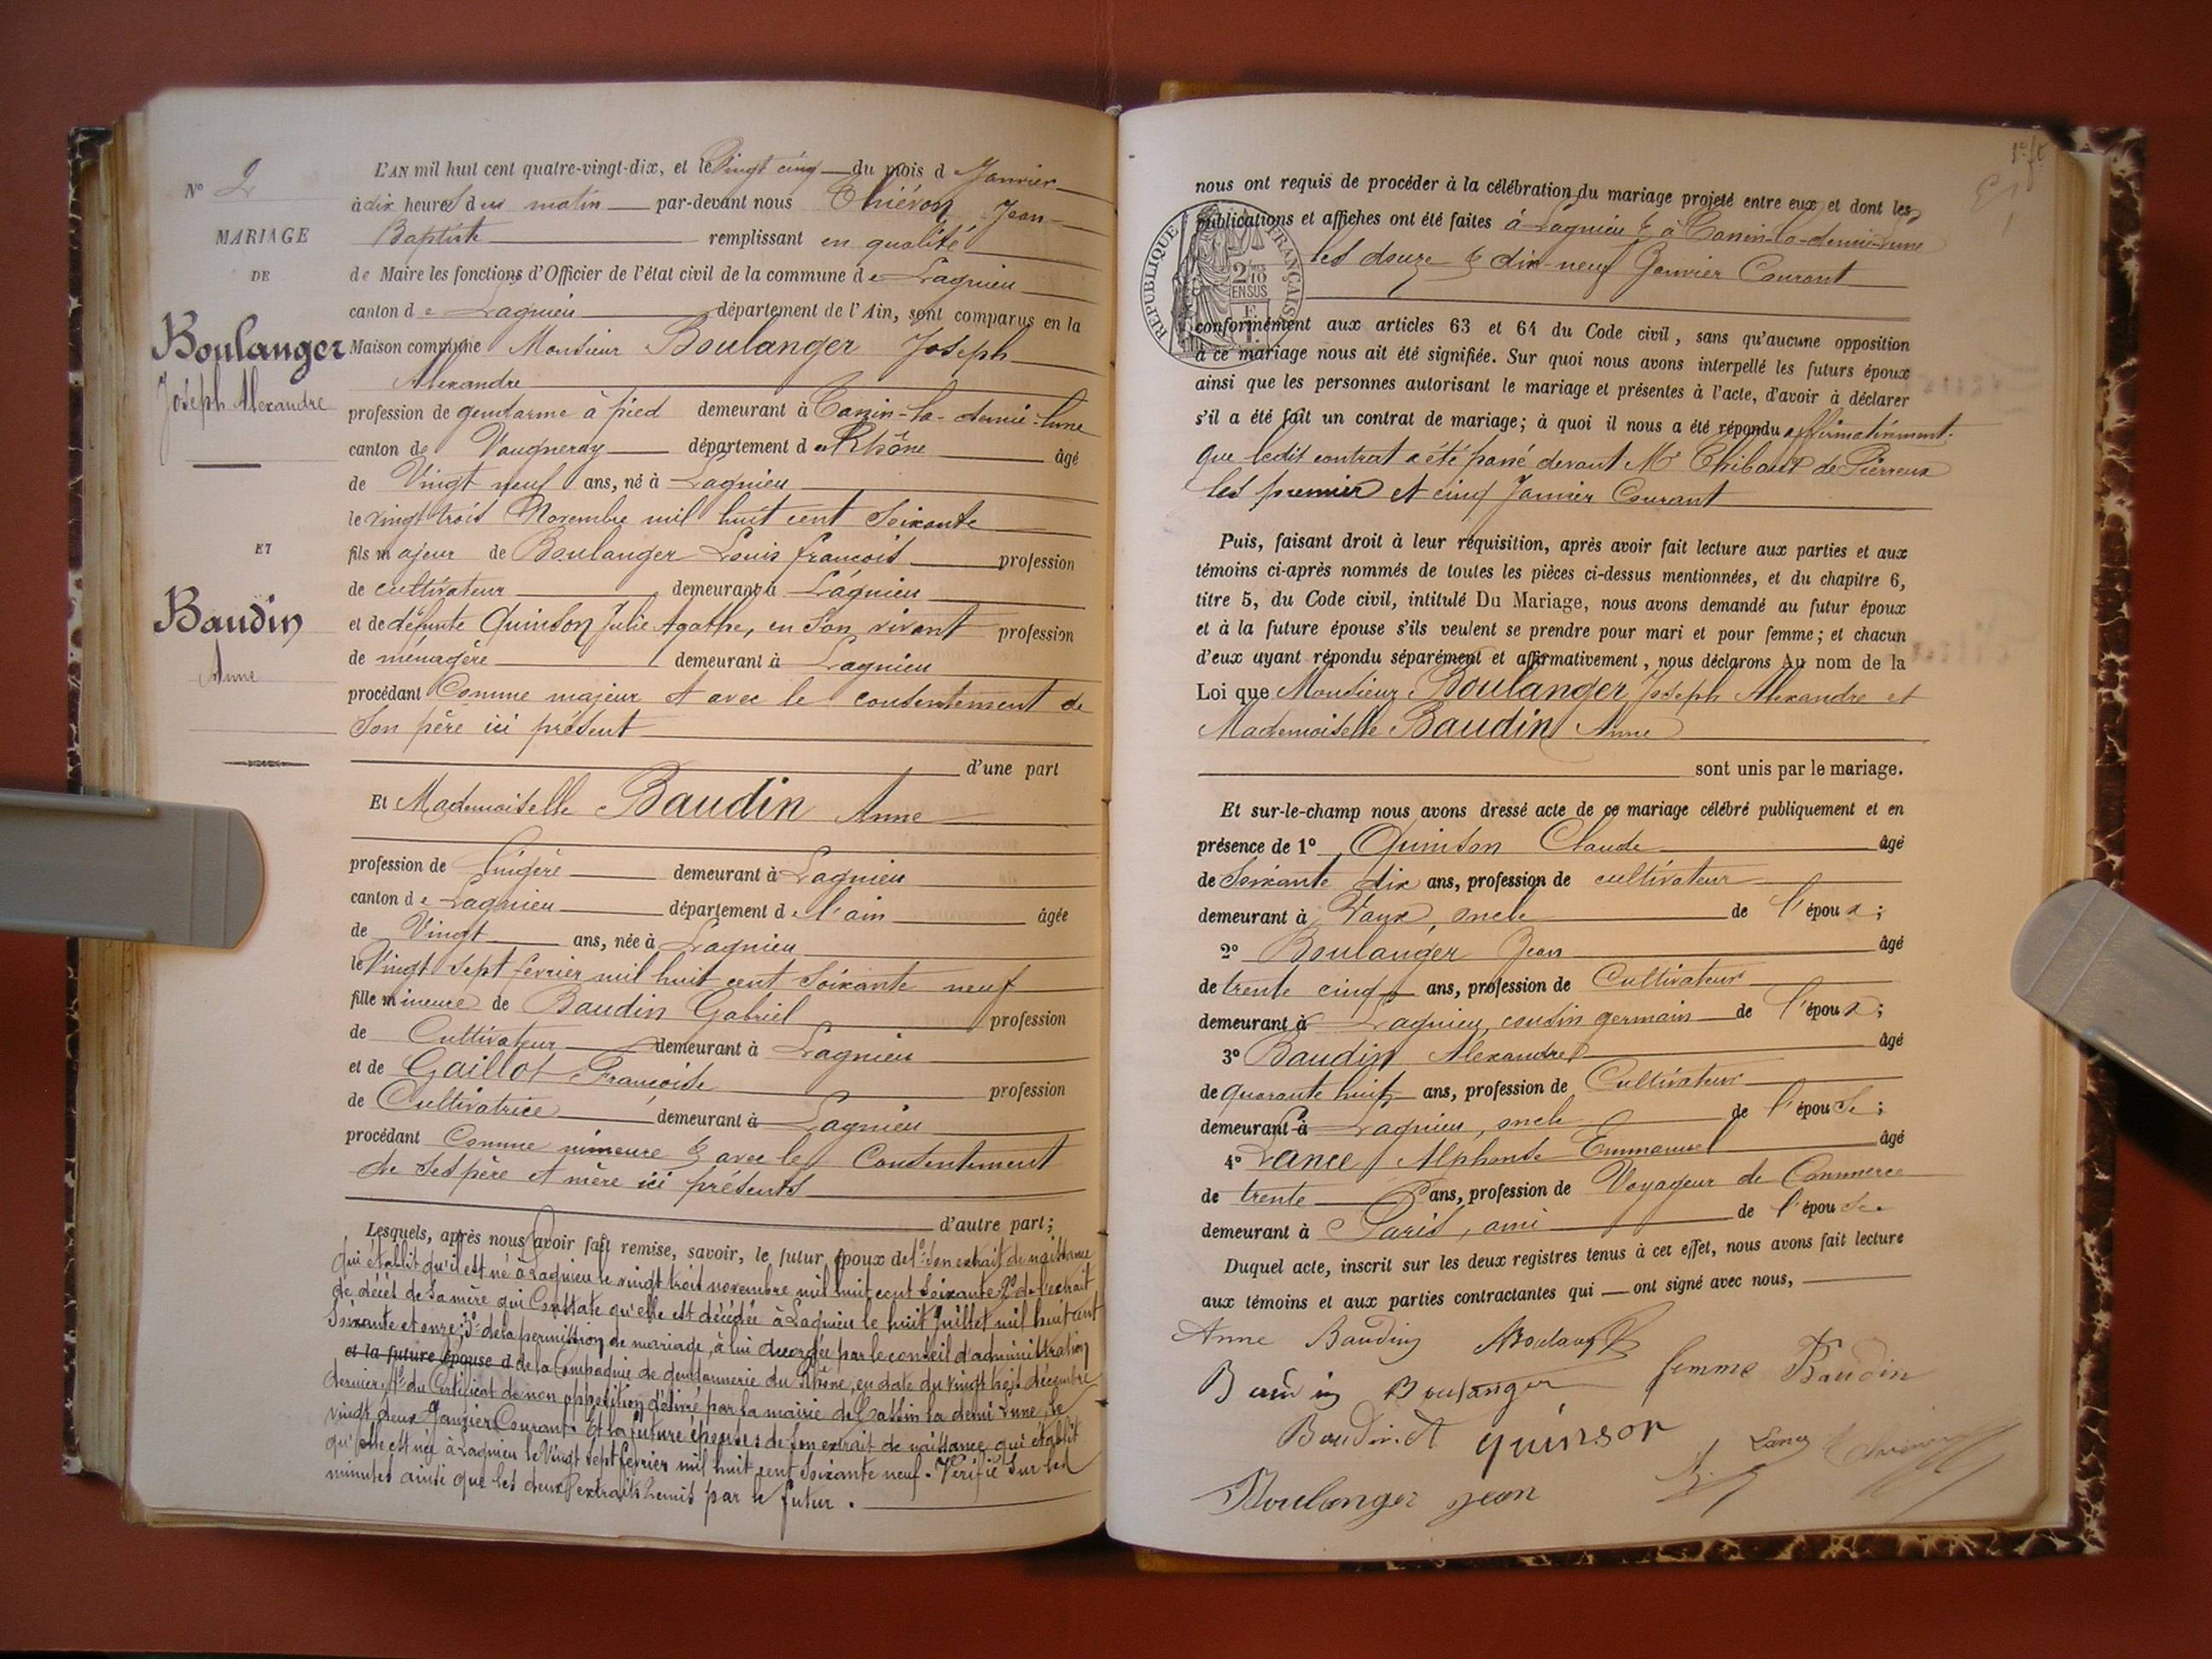 N° 2
MARIAGE
DE
Boulanger
Joseph Alexandre
ET
Baudin
Anne
L'AN mil huit cent quatre-vingt-dix, et le Vingt cinq du mois d Janvier
à dix heures du matin par-devant nous Thiévon Jean-
Baptiste remplissant en qualité
de Maire les fonctions d'Officier de l'état civil de la commune de Lagnieu
canton de Lagnieu département de l'Ain, sont comparus en la
Maison commune Monsieur Boulanger Joseph
Alexandre
profession de gendarme à pied demeurant à Tassin-la-demi-lune
canton de Vaugneray département du Rhône âgé
de Vingt neuf ans, né à Lagnieu
le vingt trois Novembre mil huit cent soixante
fils majeur de Boulanger Louis francois profession
de cultivateur demeurant à Lagnieu
et de défunte Quinson Julie Agathe, en son vivant profession
de ménagère demeurant à Lagnieu
procédant Comme majeur et avec le consentement de
son père ici présent
d'une part
Et Mademoiselle Baudin Anne
profession de lingère demeurant à Lagnieu
canton de Lagnieu département de l'ain âgée
de Vingt ans, née à Lagnieu
le Vingt sept fevrier mil huit cent soixante neuf
fille mineure de Baudin Gabriel profession
de Cultivateur demeurant à Lagnieu
et de Gaillot Francoise profession
de Cultivatrice demeurant à Lagnieu
procédant Comme mineure & avec le Consentement
de ses père et mère ici présents
d'autre part;
Lesquels, après nous avoir fait remise, savoir, le futur époux de 1° son extrait de naissance
qui établit qu'il est né à Lagnieu le vingt trois novembre mil huit cent soixante 2° de l'extrait
de décès de sa mère qui Constate qu'elle est décédée à Lagnieu le huit Juillet mil huit cent
soixante et onze; 3° de la permission de mariage, à lui accordée par le conseil d'administration
et la future épouse d de la Compagnie de gendarmerie du Rhône, en date du vingt trois décembre
dernier, 4° du Certificat de non opposition délivré par la mairie de Tassin la demi lune, le
vingt deux Janvier Courant. Et la future épouse: de son extrait de naissance qui établit
qu'elle est née à Lagnieu le Vingt sept fevrier mil huit cent soixante neuf. Vérifié sur les
minutes ainsi que les deux extraits remis par le futur.
1er ft
nous ont requis de procéder à la célébration du mariage projeté entre eux et dont les
publications et affiches ont été faites à Lagnieu & à Tassin-la-demi-lune
les douze & dix-neuf Janvier Courant
RÉPUBLIQUE FRANÇAISE
2/10 EN SUS
conformément aux articles 63 et 64 du Code civil, sans qu'aucune opposition
à ce mariage nous ait été signifiée. Sur quoi nous avons interpellé les futurs époux
ainsi que les personnes autorisant le mariage et présentes à l'acte, d'avoir à déclarer
s'il a été fait un contrat de mariage; à quoi il nous a été répondu affirmativement.
Que ledit contrat a été passé devant Me Thibault de Pierreux
les premier et cinq Janvier Courant
Puis, faisant droit à leur réquisition, après avoir fait lecture aux parties et aux
témoins ci-après nommés de toutes les pièces ci-dessus mentionnées, et du chapitre 6,
titre 5, du Code civil, intitulé Du Mariage, nous avons demandé au futur époux
et à la future épouse s'ils veulent se prendre pour mari et pour femme; et chacun
d'eux ayant répondu séparément et affirmativement, nous déclarons Au nom de la
Loi que Monsieur Boulanger Joseph Alexandre et
Mademoiselle Baudin Anne
sont unis par le mariage.
Et sur-le-champ nous avons dressé acte de ce mariage célébré publiquement et en
présence de 1° Quinson Claude âgé
de Soixante dix ans, profession de cultivateur
demeurant à Vaux, oncle de l'époux;
2° Boulanger Jean âgé
de trente cinq ans, profession de Cultivateur
demeurant à Lagnieu, cousin germain de l'époux;
3° Baudin Alexandre âgé
de quarante huit ans, profession de Cultivateur
demeurant à Lagnieu, oncle de l'épouse;
4° Lance Alphonse Emmanuel âgé
de trente ans, profession de Voyageur de Commerce
demeurant à Paris, ami de l'épouse
Duquel acte, inscrit sur les deux registres tenus à cet effet, nous avons fait lecture
aux témoins et aux parties contractantes qui ont signé avec nous,
Anne Baudin
Baudin Boulanger femme Baudin
Baudin A quinson Lance
Boulanger jean